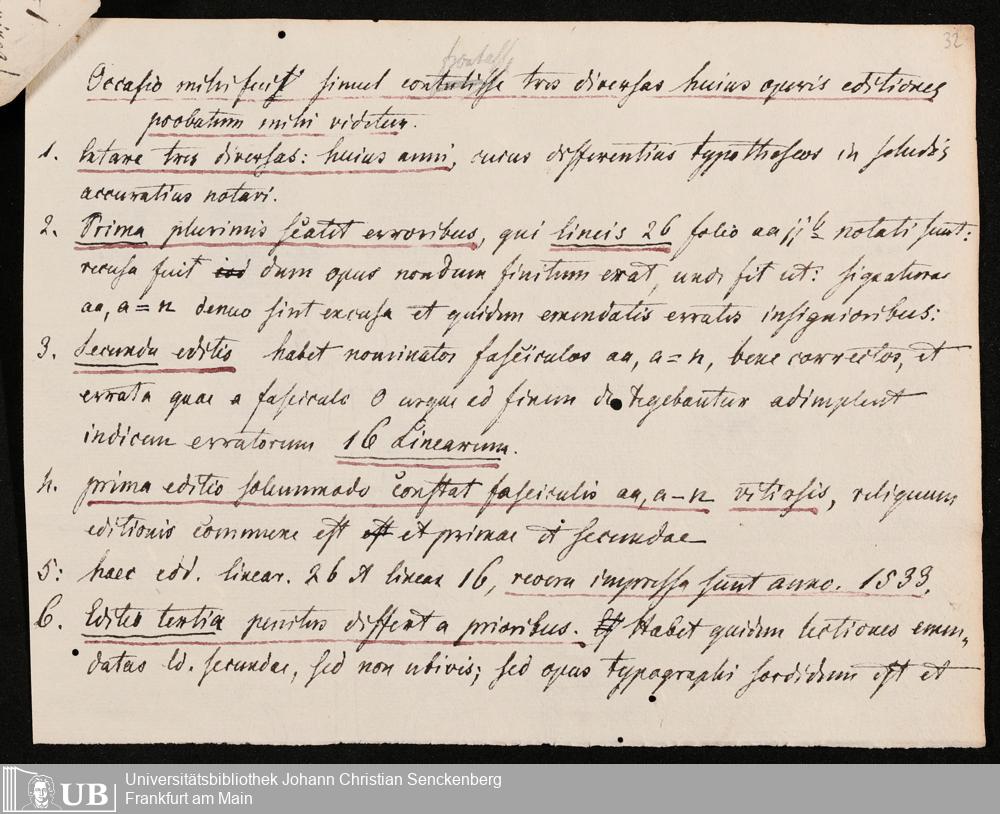 32
Occasio mihi fuit simul contulisse tres diversas huius operis editiones
probatum mihi videtur.
1. extare tres diversas: huius anni, cuius differentias typotheseos in schedis
accuratius notavi.
2. Prima plurimis scatet erroribus, qui lineis 26 folio aa notati sunt:
recusa fuit dum opus nondum finitum erat, unde fit ut: signaturae
aa, a=n denuo sint excusa et quidem emendatis erratis insignioribus:
3. Secunda editio habet nominatos fasciculos aa, a=n, bene correctos, et
errata quae a fasciculo O usque ad finem detegebantur adimplent
indicem erratorum 16 Linearum.
4. prima editio solummodo constat fasciculis aa, a-n vitiosis, reliquum
editionis commune est et primae et secundae
5: haec edd. linear. 26 et linear 16, revera impressa sunt anno. 1533.
6. Editio tertia penitus differt a prioribus. Habet quidem lectiones emen-
datas Ed. secundae, sed non ubivis; sed opus typographi sordidum est et
UB Universitätsbibliothek Johann Christian Senckenberg
Frankfurt am Main